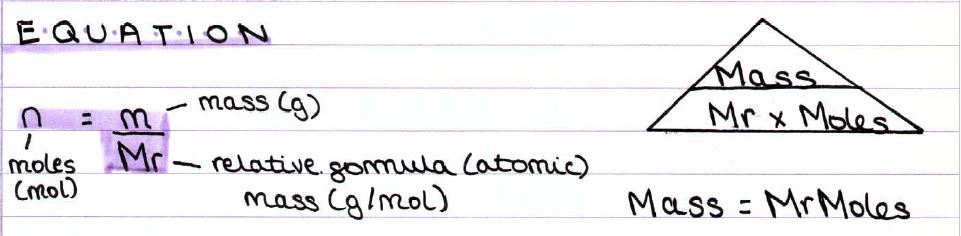 EQUATION
n = m/Mr
mass (g)
moles (mol)
relative formula (atomic)
mass (g/mol)
Mass
Mr x Moles
Mass = Mr Moles